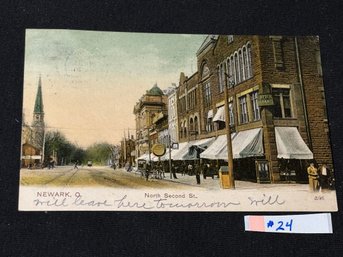 NEWARK, O.
North Second St.
will leave here tomorrow will
#24